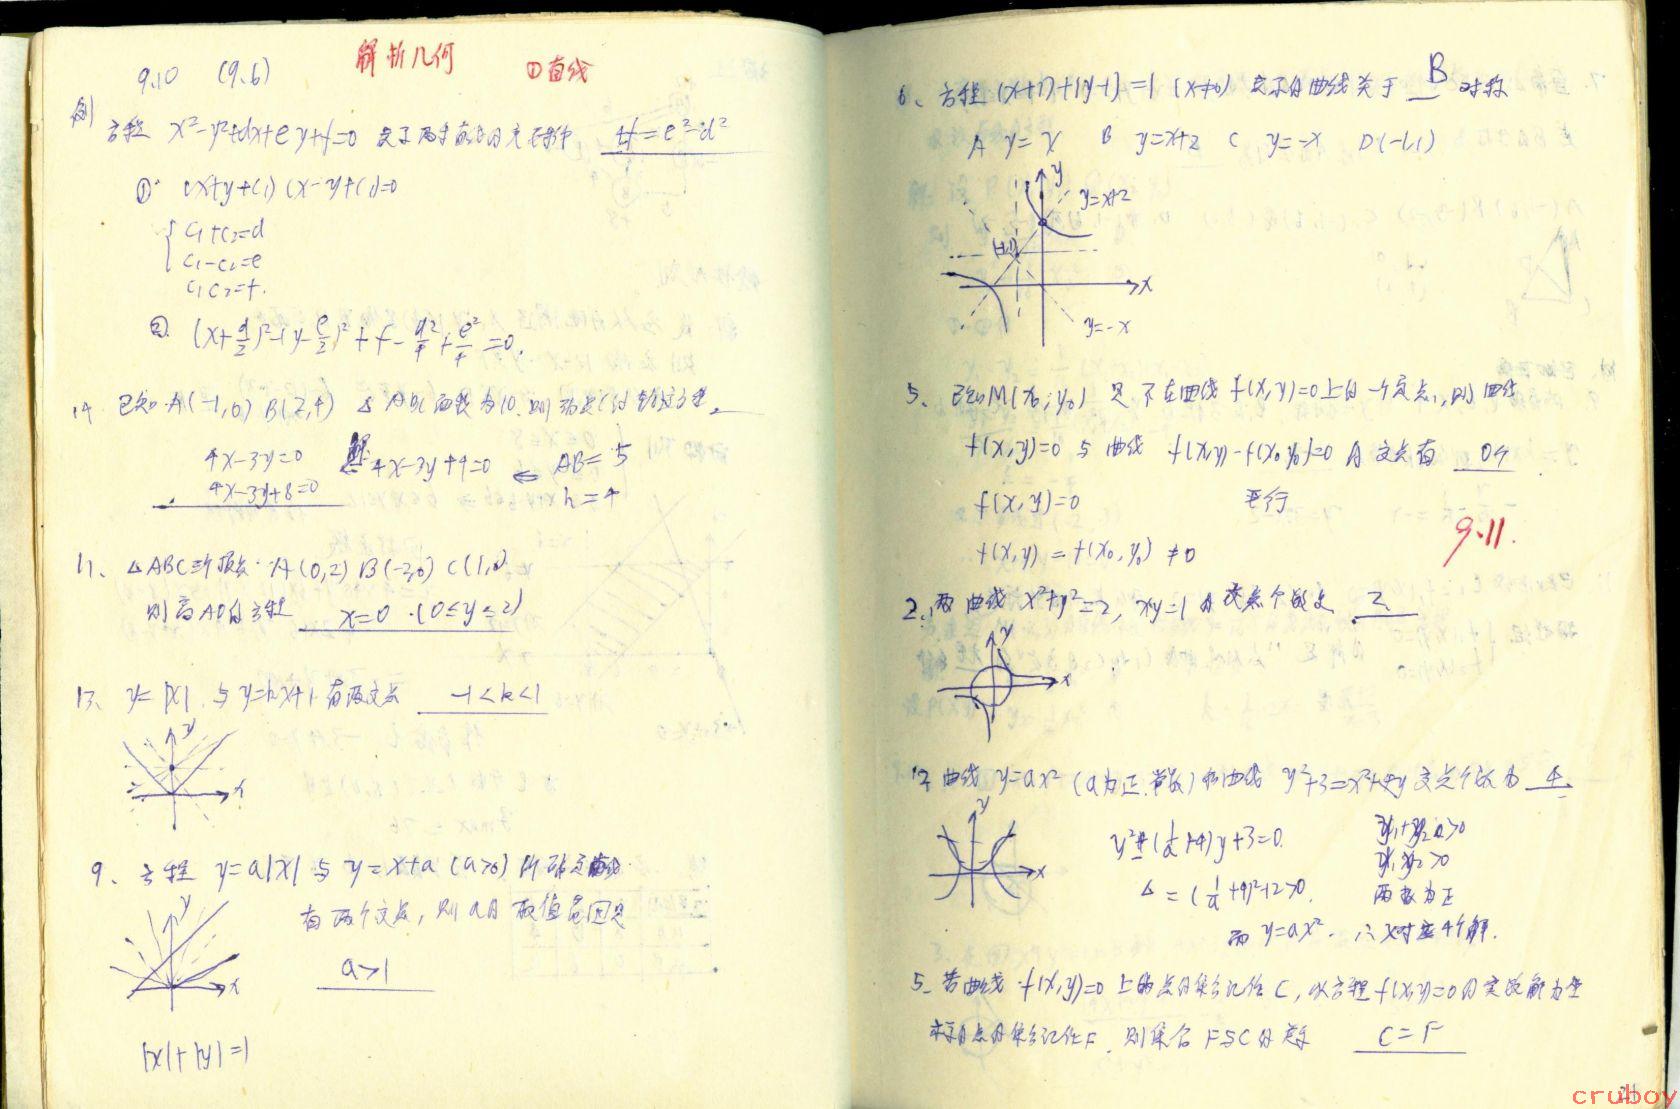 解析几何
①直线
9.10 (9.6)
例 方程 x²-y²+dx+ey+f=0 表示两条直线的充要条件 4f=e²-d²
① (x+y+c₁)(x-y+c₂)=0
c₁+c₂=d
c₁-c₂=e
c₁c₂=f.
② (x+d/2)²-(y-e/2)²+f-d²/4+e²/4=0.
14 已知 A(-1,0) B(2,4) △ABC面积为10, 则动点C的轨迹方程
4x-3y=0 4x-3y+4=0 ⇐ AB=5
4x-3y+8=0 h=4
11、△ABC三个顶点 A(0,2) B(-2,0) C(1,0)
则高AD的方程 x=0 (0≤y≤2)
13、y=|x| 与 y=kx+1 有两交点 -1<k<1
y
x
9、方程 y=a|x| 与 y=x+a (a>0) 所确定曲线
有两个交点,则a的取值范围是
a>1
y
x
|x|+|y|=1
6、方程 (x+1)+(y-1)=1 (x≠0) 表示的曲线关于 B 对称
A y=x B y=x+2 C y=-x D(-1,1)
y
y=x+2
x
y=-x
5、已知M(x₀,y₀) 是不在曲线 f(x,y)=0上的一个定点,则曲线
f(x,y)=0 与曲线 f(x,y)-f(x₀,y₀)=0的交点有 0个
f(x,y)=0 平行
f(x,y)=f(x₀,y₀)≠0
9.11.
2、两曲线 x²+y²=2, xy=1 的交点个数是 2
y
x
12 曲线 y=ax² (a为正常数) 和曲线 y²+3=x²+4y 交点个数为 4
y
x
y²-(1/a+4)y+3=0. y₁+y₂>0
y₁y₂>0
△=(1/a+4)²-12>0. 两数为正
而 y=ax². ∴x对应4个解.
5、若曲线 f(x,y)=0上的点的集合记作C,以方程f(x,y)=0的实数解为坐
标的点的集合记作F, 则集合F与C的关系 C=F
21
cruboy